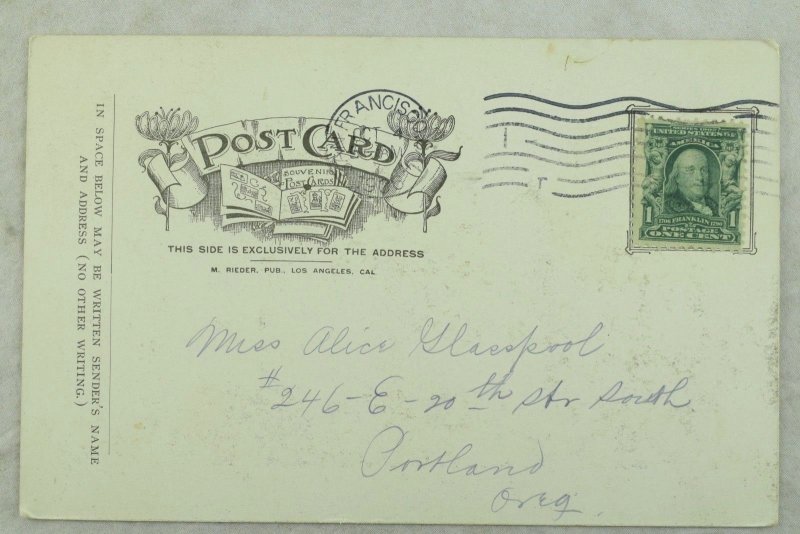 IN SPACE BELOW MAY BE WRITTEN SENDER'S NAME
AND ADDRESS (NO OTHER WRITING.)
POST CARD
SOUVENIR
POST CARDS
THIS SIDE IS EXCLUSIVELY FOR THE ADDRESS
M. RIEDER, PUB., LOS ANGELES, CAL
FRANCISCO
SERIES 1902
UNITED STATES OF
AMERICA
1 1706 FRANKLIN 1790 1
POSTAGE
ONE CENT
Miss Alice Glasspool
#246-E-20th Str South.
Portland
Oreg.